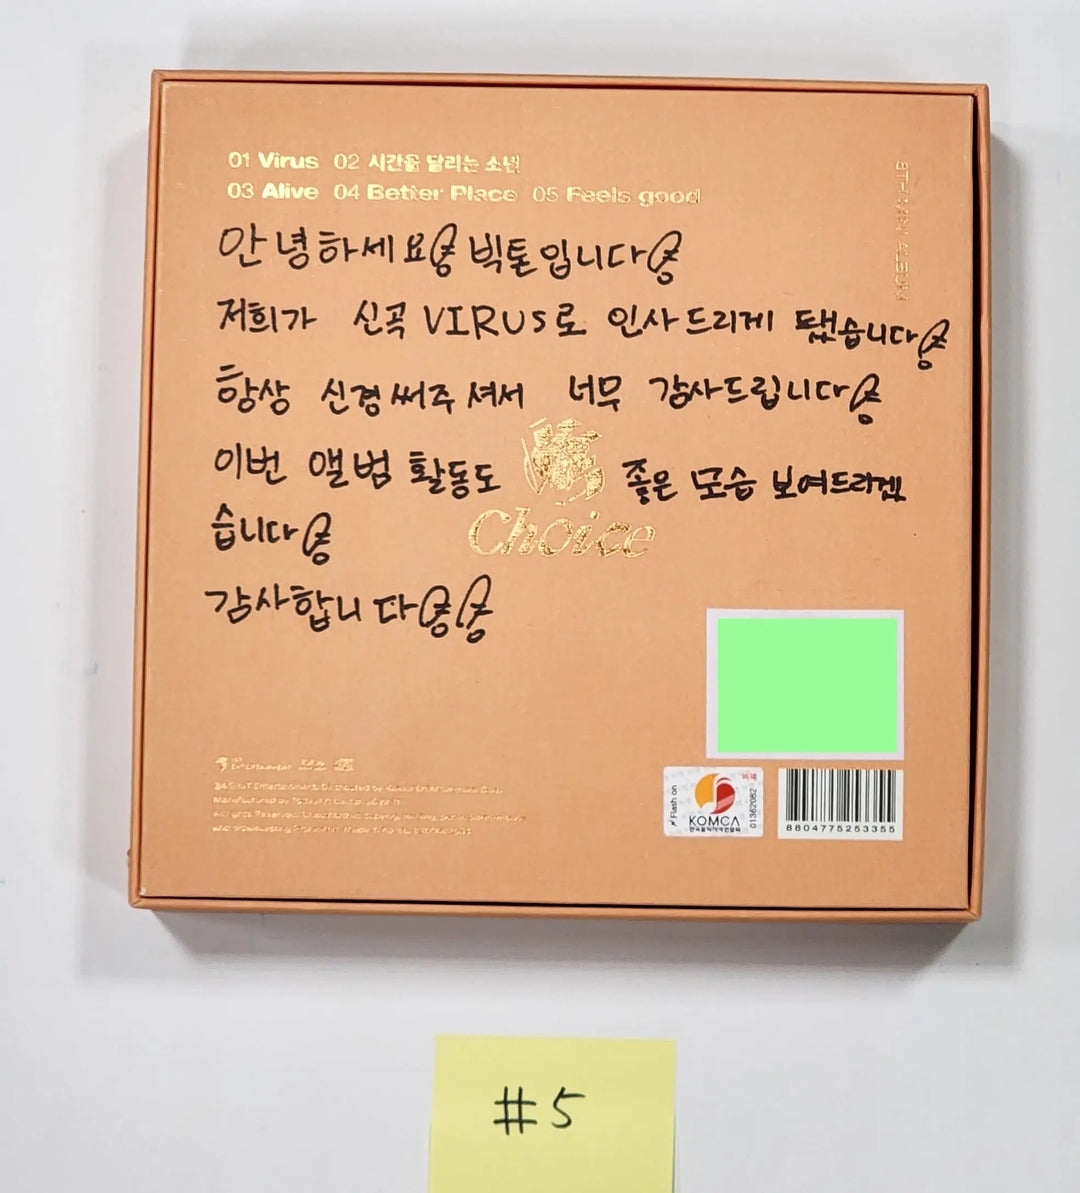 01 Virus 02 시간을 달리는 소년
03 Alive 04 Better Place 05 Feels good
8TH MINI ALBUM
안녕하세요 빅톤입니다
저희가 신곡 VIRUS로 인사드리게 됐습니다
항상 신경써주셔서 너무 감사드립니다
이번 앨범 활동도 좋은 모습 보여드리겠
습니다
감사합니다
Choice
Flash on
KOMCA
한국음악저작권협회
01362082
8804775253355
#5